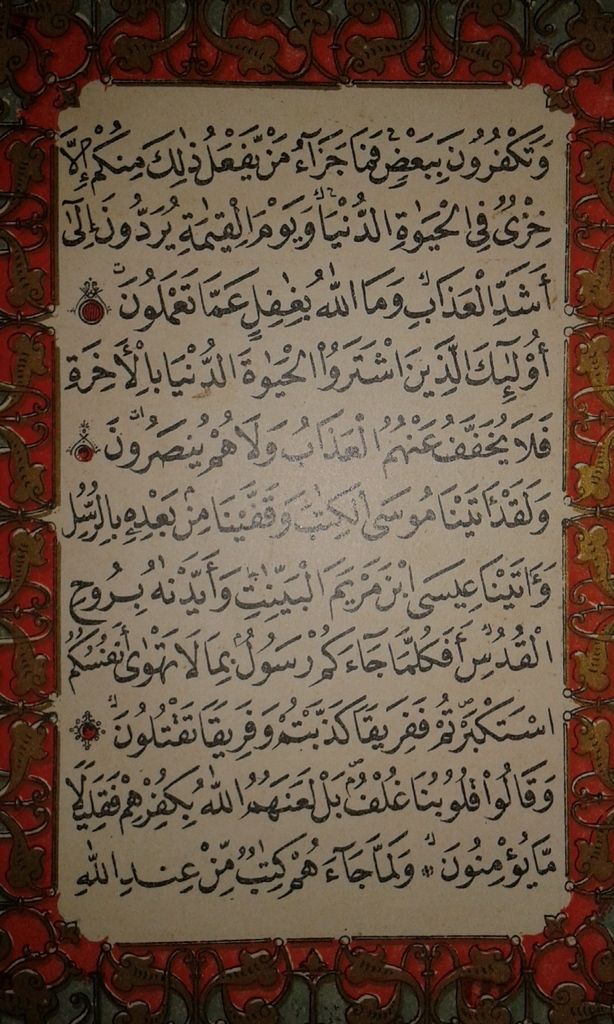 وَتَكْفُرُونَ بِبَعْضٍ فَمَا جَزَآءُ مَنْ يَفْعَلُ ذٰلِكَ مِنكُمْ إِلَّا
خِزْىٌ فِى الْحَيَوٰةِ الدُّنْيَا وَيَوْمَ الْقِيٰمَةِ يُرَدُّونَ إِلَىٰ
أَشَدِّ الْعَذَابِ وَمَا اللّٰهُ بِغٰفِلٍ عَمَّا تَعْمَلُونَ
أُوْلَٰٓئِكَ الَّذِينَ اشْتَرَوُا الْحَيَوٰةَ الدُّنْيَا بِالْأَخِرَةِ
فَلَا يُخَفَّفُ عَنْهُمُ الْعَذَابُ وَلَا هُمْ يُنصَرُونَ
وَلَقَدْ ءَاتَيْنَا مُوسَى الْكِتٰبَ وَقَفَّيْنَا مِنْ بَعْدِهِ بِالرُّسُلِ
وَءَاتَيْنَا عِيسَى ابْنَ مَرْيَمَ الْبَيِّنٰتِ وَأَيَّدْنٰهُ بِرُوحِ
الْقُدُسِ أَفَكُلَّمَا جَاءَكُمْ رَسُولٌ بِمَا لَا تَهْوٰى أَنفُسُكُمُ
اسْتَكْبَرْتُمْ فَفَرِيقًا كَذَّبْتُمْ وَفَرِيقًا تَقْتُلُونَ
وَقَالُوا قُلُوبُنَا غُلْفٌ بَلْ لَعَنَهُمُ اللّٰهُ بِكُفْرِهِمْ فَقَلِيلًا
مَّا يُؤْمِنُونَ وَلَمَّا جَاءَهُمْ كِتٰبٌ مِّنْ عِندِ اللّٰهِ